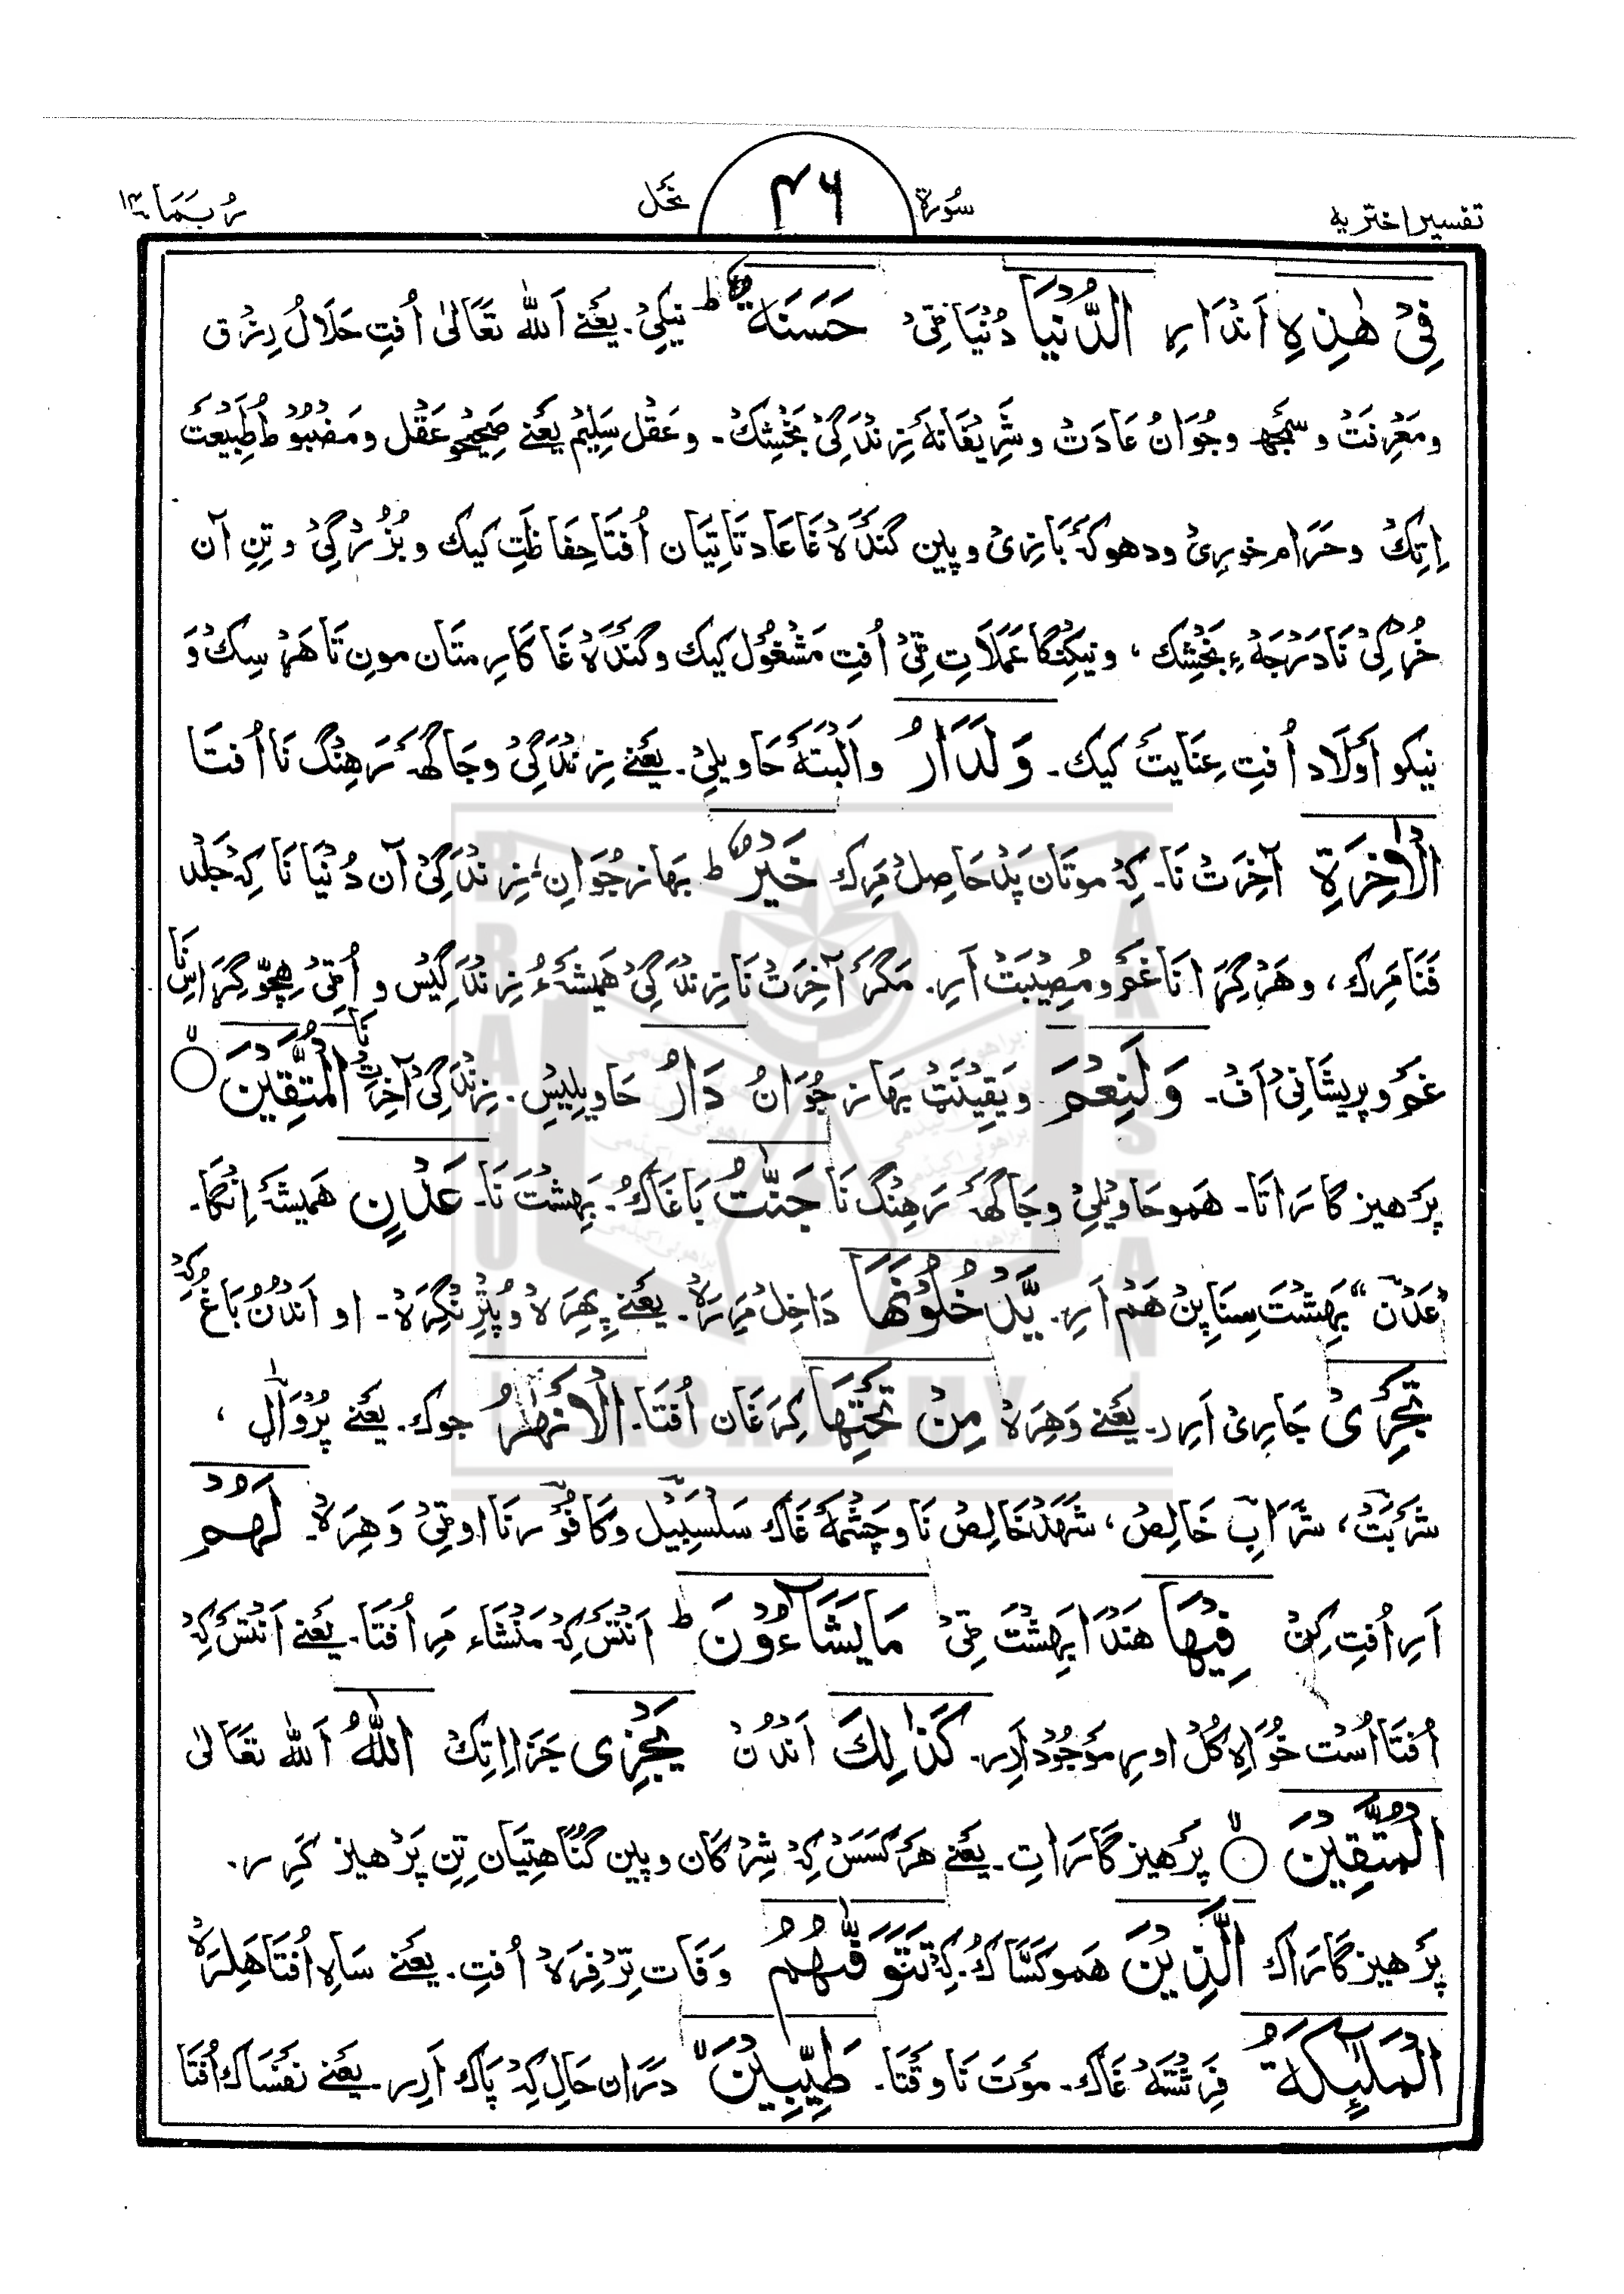 تفسیر اختریه
سُورة
۴۶
نَحل
رُبَمَا ۱۴
فِیْ هٰذِهِ اَندَارِ الدُّنْیَا دُنْیَا ٹیْ حَسَنَةٌ ؕ نیکیْ۔ یعَنے اَللّٰه تَعَالٰی اُفتِ حَلَالُ رِزْق
و مَعْرِفَتْ و سَمجھ و جُوَانُ عَادَتْ و شَرِیْفَانَه زِنْدَگِیْ بَخْشِکْ۔ و عَقْل سَلِیْم یعَنے صَحِیْحُو عَقْل و مَضْبُوْطُ طَبِیْعَتْ
اِتِکْ و حَرَام خورِیْ و دھوکَه بَازِیْ و پین گندَه غَا عَادتَاتِیَان اُفتَا حِفَاظَتِ کیک و بُزُرْگِیْ و تِنِ آن
خُڑْکِیْ نَا دَرْجَهءِ بَخْشِک ، و نیکِنْگَا عَمَلَاتِ ٹیْ اُفتِ مَشْغُوْل کیک و گندَه غَا کَارِمتَان مونِ تَا هَڑْسِکْ وَ
نیکو اَوْلَاد اُفتِ عِنَایتَ کیک۔ وَلَدَارُ و اَلْبَتَّهَ حَاویلیْ۔ یعَنے زِنْدَگِیْ و جَاگَهَ رَهِنْگ نَا اُفتَا
الْاٰخِرَةِ آخِرَتْ نَا۔ کِهْ موتَان پَدْ حَاصِلْ مَرِک خَیْرٌ ؕ بهَاز جُوَانِ، زِنْدَگِیْ آن دُنْیَا نَا کِهْ جَلْد
فَنَا مَرِک، و هَرْ گِڑَا نَا غَم و مُصِیْبَتْ اَرِ. مَگَرْ آخِرَتْ نَا زِنْدَگِیْ هَمِیْشَهءُ زِنْدَگِیْس و اُ ٹیْ هِچّو گِڑَاسِ نَا
غَم و پریشَانِیْ اَفْ۔ وَ لَنِعْمَ وَ یَقِیْنَتْ بهَاز جُوَانُ دَارُ حَاویلِیسِ۔ زِنْدَگِیْ آخِرَتْ نَا الْمُتَّقِیْنَ ۙ
پَرْهیز گَارَاتَا۔ هَمو حَاویْلِیْ و جَاگَهَ رَهِنْگ نَا جَنّٰتُ بَاغَاکُ۔ بَهِشْتْ نَا۔ عَدْنٍ هَمیشَهَ اِنْگَا۔
"عَدْن" بَهِشْت سِنَا پِنْ هَمْ اَرِ. یَّدْخُلُوْنَهَا دَاخِلْ مَرِرَهْ۔ یعَنے پھِرَهْ و پُٹِّنْگِرَهْ۔ او اَندُنُ بَاغُ کِهْ
تَجْرِیْ جَارِیْ اَرِد۔ یعَنے وَهِرَهْ مِنْ تَحْتِهَا کِرَغَان اُفتَا۔ الْاَنْهٰرُ جوک۔ یعَنے پُرْوَالِ ،
شَرْبَتْ، شَرَابِ خَالِصْ، شَهَدْ خَالِصْ نَا و چَشْمَه غَاک سَلْسَبِیْل و کَافُوْر نَا او ٹیْ وَهِرَهْ۔ لَهُمْ
اَرِ اُفتِ کِنْ فِیْهَا هَنْدَا بَهِشْت ٹیْ مَا یَشَآءُوْنَ ؕ اَنْتَسَ کِهْ مَنْشَاء مَرِ اُفتَا۔ یعَنے اَنْتَسَ کِهْ
اُفتَا اُسْت خُوَاهِ کُلْ اورِ مَوْجُوْد اَرِر۔ کَذٰلِکَ اَندُنْ یَجْزِی جَزَا اِتِکْ اللّٰهُ اَللّٰه تَعَالٰی
الْمُتَّقِیْنَ ۙ پَرْهیز گَارَاتِ۔ یعَنے هَرْ کَسَسْ کِهْ شِرْکَان و پین گُنَاهتِیَان تِنِ پَرْهیز کَرِر.
پَرْهیز گَارَاک الَّذِیْنَ هَمو کَسَّاکُ۔ کِهْ تَتَوَفّٰهُمُ وَفَات تِرْفِرَهْ اُفتِ۔ یعَنے سَاهِ اُفتَا هَلِرَهْ
الْمَلٰٓئِکَةُ فِرِشْتَهْ غَاک۔ مَوْتَ نَا وَقْتَا۔ طَیِّبِیْنَ ۙ دَرَان حَال کِهْ پَاک اَرِر۔ یعَنے نَفْسَاک اُفتَا